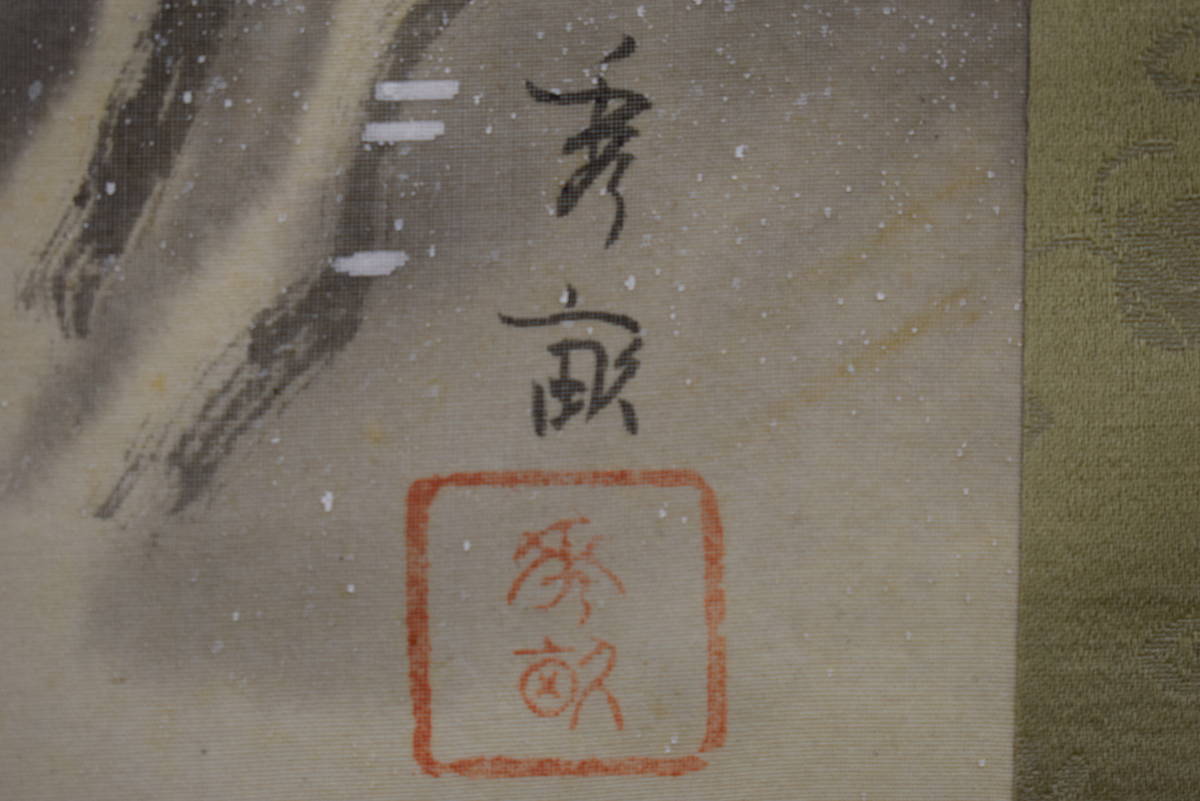 秀畝
秀畝